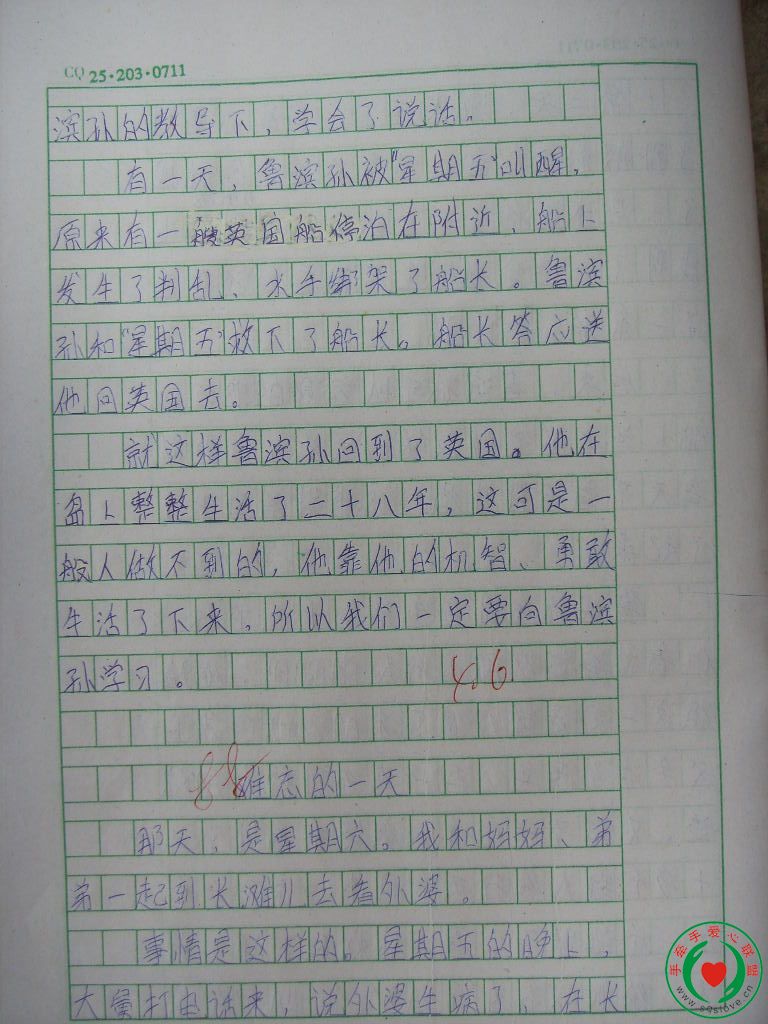 CQ 25·203·0711
滨孙的教导下，学会了说话。
有一天，鲁滨孙被"星期五"叫醒，
原来有一艘英国船停泊在附近，船上
发生了判乱、水手绑架了船长。鲁滨
孙和"星期五"救下了船长。船长答应送
他回英国去。
就这样鲁滨孙回到了英国。他在
岛上整整生活了二十八年，这可是一
般人做不到的，他靠他的机智、勇敢
生活了下来。所以我们一定要向鲁滨
孙学习。
4.6
88
难忘的一天
那天，是星期六。我和妈妈、弟
弟一起到长滩儿去看外婆。
事情是这样的。星期五的晚上，
大舅打电话来，说外婆生病了，在长
手牵手爱心联盟
www.sqslove.cn